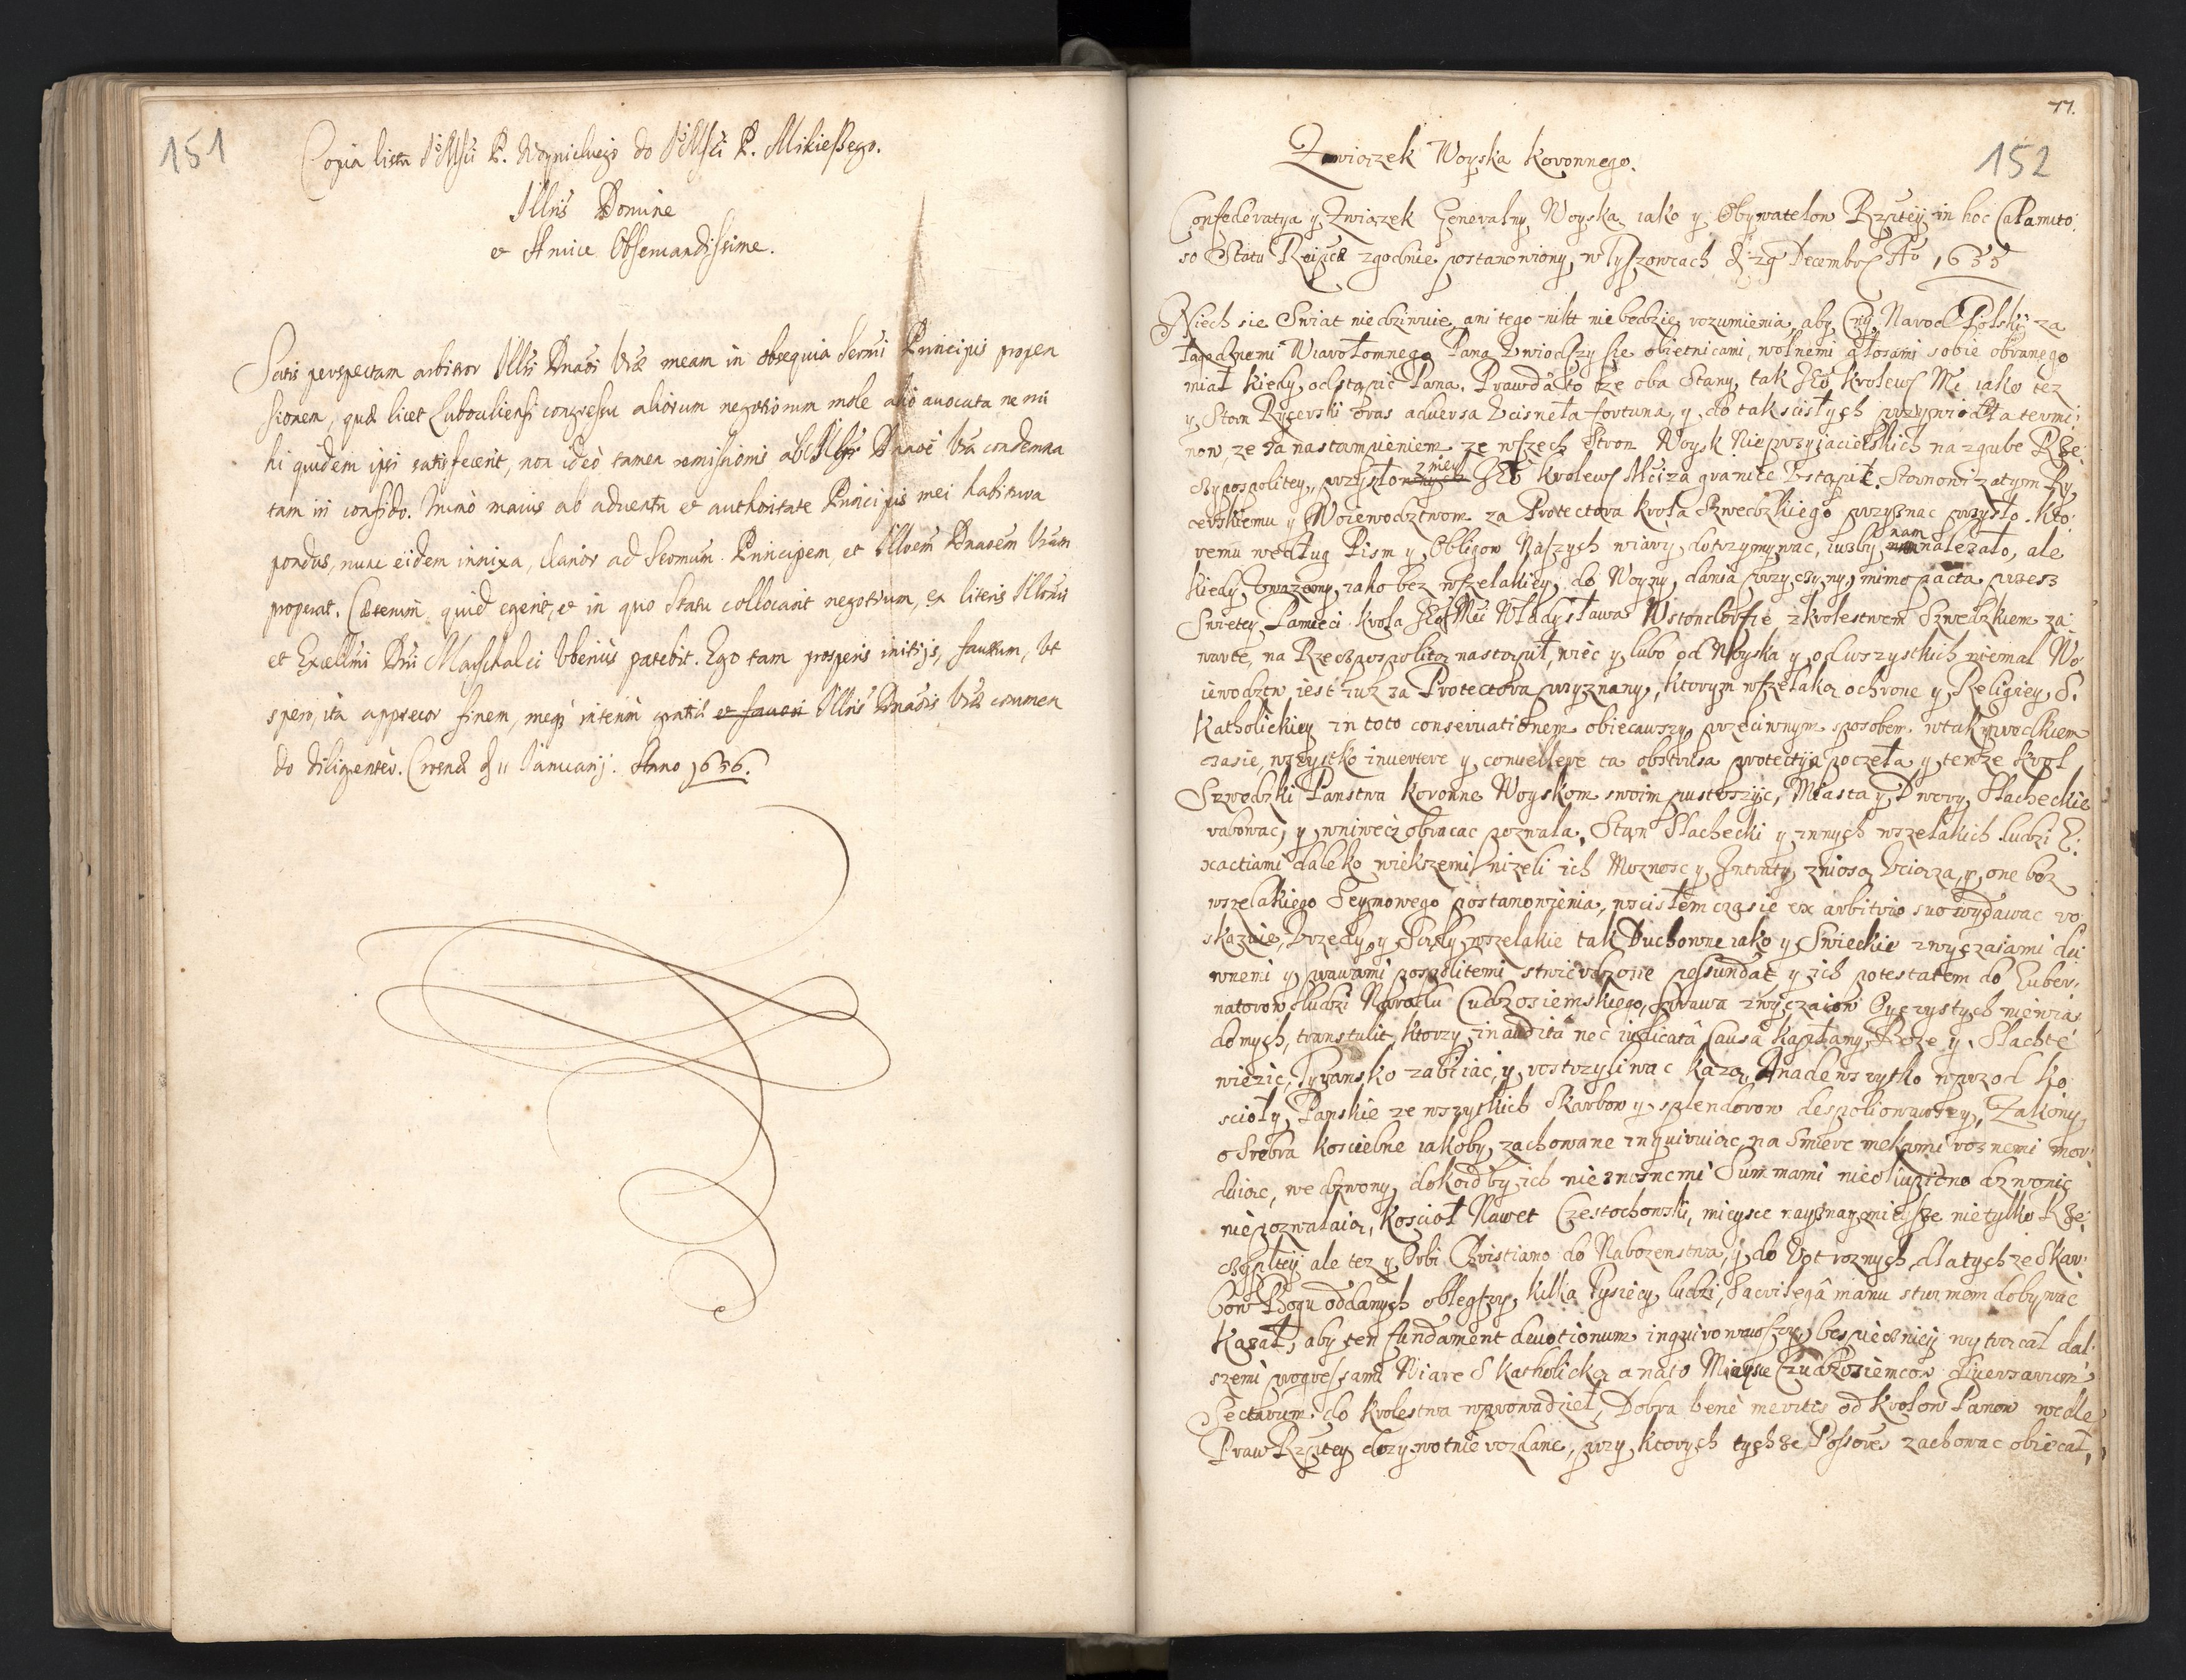 151
Copia listu JeMsci P. Woynickiego do JeMsci P. Mikieszego.
Illris Domine
et Amice Obseruandissime.
Satis perspectam arbitror Illri Dnaõi Vrae meam in obsequia Sermi Principis propen
sionem, quae licet Lubouliensi congressu aliorum negotiorum mole alio auocata ne mi
hi quidem ipsi satisfecerit, non ideò tamen remissionis ab Illri Dnaõe Vra condemna
tam iri confido. Immò maius ab aduentu et authoritate Principis mei habitura
pondus, nunc eidem innixa, clarior ad Sermum Principem, et Illrem Dnaõem Vram
properat. Caeterum quid egerit, et in quo Statu collocarit negotium, ex literis Illrmi
et Excellmi Dni Marschalci Vberius patebit. Ego tam prosperis initijs, faustum, Vt
spero, ita apprecor finem, meque interim gratiae et fauori Illris Dnaõis Vrae commen
do diligenter. Crosnae d 11 Januarij. Anno 1656.
77.
152
Zwiozek Woyska Koronnego.
Confederatya y Związek Generalny Woyska iako y Obywatelow Rzptey in hoc Calamito:
so Statu Reipcae zgodnie postanowiony w Tyszowcach d 29 Decembr Ao 1655
Niech sie Swiat niedziwuie, ani tego nikt nie bedzie rozumienia, aby Cny Narod Polski za
łagodnemi Wiarołomnego Pana Zwiodszy sie obietnicami, wolnemi głosami sobie obranego
miał kiedy odstąpić Pana. Prawda to że oba Stany, tak Je° Krolews Mć iako też
y Stan Rycerski oras aduersa Vcisneła fortuna, y do tak scisłych przywiodła termi:
now, ze za nastąmpieniem ze wszech Stron Woysk Nieprzyjacielskich na zgube Rze:
czypospolitey, przyszło z niey Je° Krolews Mści za granice Vstąpić. Stanowi zatym Ry
cerskiemu y Woiewodztwom za Protectora Krola Szwedzkiego przyznac przyszło. Kto:
remu według Pism y Obligow Naszych wiary dotrzymywac, iużby nam należało, ale
kiedy Vważemy, iako bez wszelakiey do Woyny dania przyczyny, mimo pacta przesz
Swietey Pamięci Krola Je° Mści Władysława W Stondorfie z Krolestwem Szwedzkiem za:
warte, na Rzeczpospolitą nastąpił, więc y lubo od Woyska y od wszystkich niemal Wo
iewodztw iest iuż za Protectora przyznany, ktorym wszelaką ochrone y Religiey S.
Katholickiey in toto conseruationem obiecawszy, przeciwnym sposobem w tak krotkiem
czasie, wszystko inuertere y conuellere ta obstrusa protectya poczeła y tenże Krol
Szwedzki Panstwa Koronne Woyskom swoim pustoszyc, Miasta y Dwory Slacheckie
rabowac, y wniwecz obracac pozwala. Stan Slachecki y innych wszelakich ludzi E:
xactiami daleko wiekszemi niżeli ich Moznosc y Intraty zniosą Vciąza, y one bez
wszelakiego Seymowego postanowienia, w scisłem czasie ex arbitrio suo wydawac ro:
skazuie, Vrzedy y Sądy wszelakie tak Duchowne iako y Swieckie zwyczaiami da:
wnemi y prawami pospolitemi stwierdzone pessundat y ich potestatem do Guber:
natorow Ludzi Narodu Cudzosiemskiego, Prawa zwyczaiow Oyczystych niewia:
domych, transtulit, ktorzy inauditâ nec iudicatâ Causâ Kapłany Boże y Slachte
wiezic, Tyransko zabiiac, y rostrzyliwac każą, A nadewszytko wprzod Ko
scioły Panskie ze wszytkich Skarbow y splendorow despoliowawszy, Zakony
o Srebra Koscielne iakoby zachowane inquiruiąc, na Smierc mekami roznemi mor:
duiąc, we dzwony, dokądby ich nieznosnemi Summami nieokupiono dzwonic
niepozwalaią, Kosciol Nawet Czestochowski, mieysce nayznacznieysze nie tylko Rze:
czyptey ale tez y Orbi Christiano do Nabozenstwa, y do Vot roznych, dla tychże Skar:
bow Bogu oddanych oblegszy, kilka Tysiecy ludzi, Sacrilegâ manu sturmem dobywac
kazał, aby ten fundament deuotionum inquirowawszy, bespieczniey wytracał dal:
szemi progressami Wiare S Katholicką a na to Mieysce Cudzoziemcow diuersarum
Sectarum do Krolestwa wprowadził, Dobra benè meritis od Krolow Panow wedle
Praw Rzptey dożywotnie rozdane, przy ktorych tychże Possores zachowac obiecał,